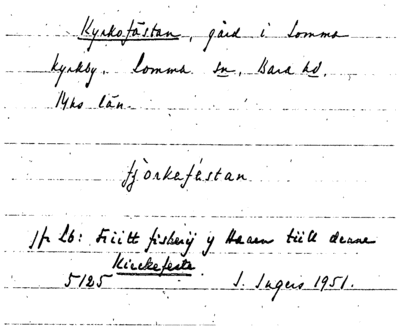 Kyrkofästan, gård i Lomma
kyrkby, Lomma sn, Bara hd.
Mhs län.
fjörkefästan
jfr Lb: Friitt fisherij y Haaen till denne
Kirckefeste
5125 I. Ingers 1951.